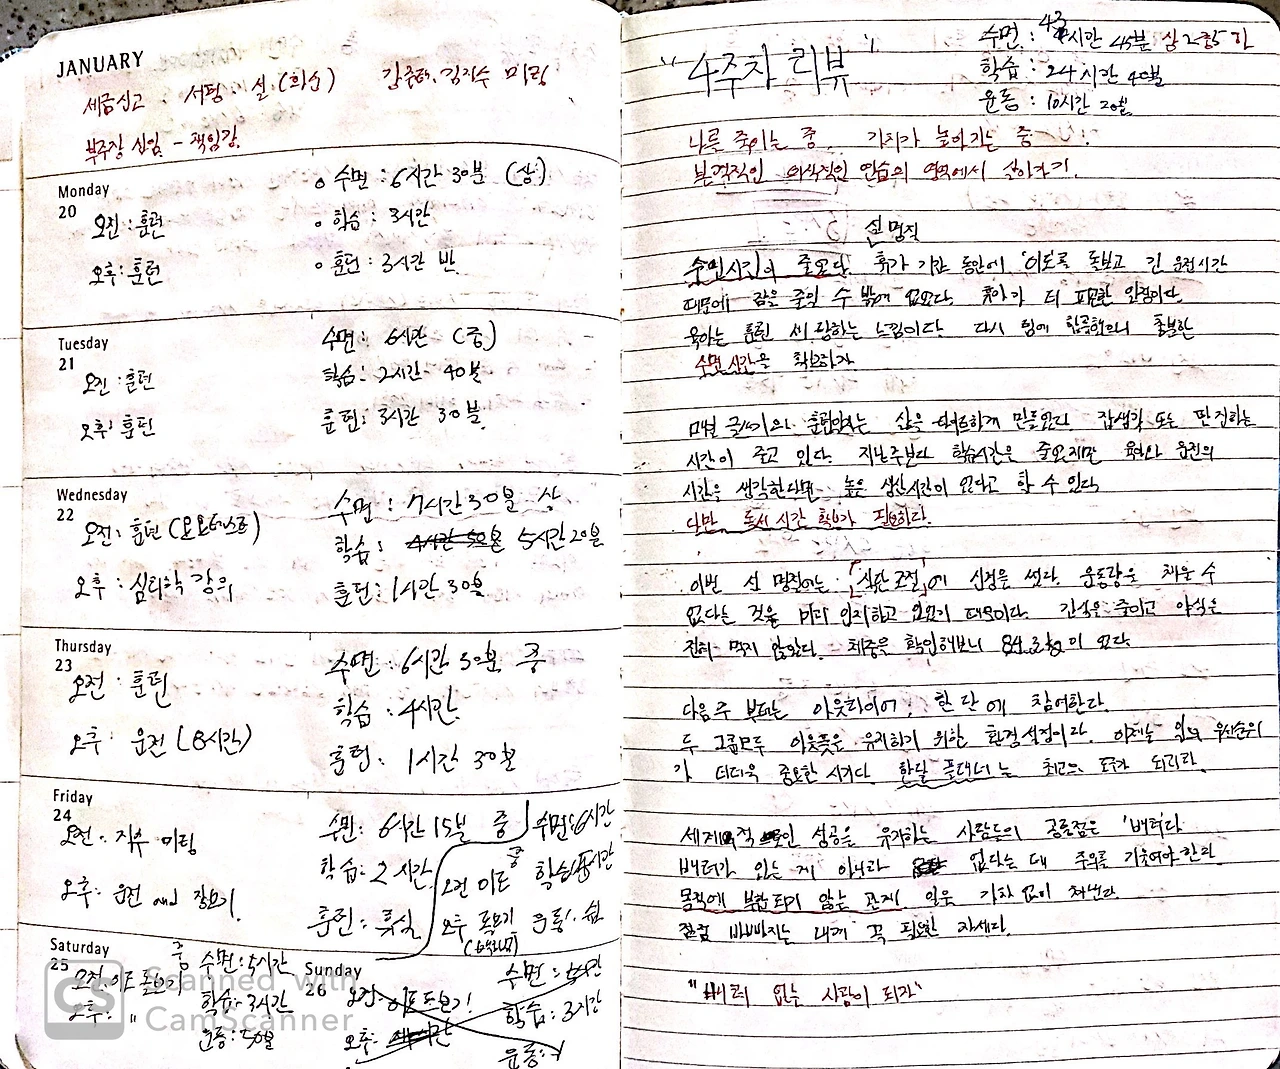 JANUARY
세금신고 서평 미팅
부주장 선임 - 책임감
Monday
20
오전 : 훈련
오후 : 훈련
수면 : 6시간 30분 (상)
학습 : 3시간
훈련 : 3시간 반
Tuesday
21
오전 : 훈련
오후 : 훈련
수면 : 6시간 (중)
학습 : 2시간 40분
훈련 : 3시간 30분
Wednesday
22
오전 : 훈련 (요요테스트)
오후 : 심리학 강의
수면 : 7시간 30분 상
학습 : 4시간 50분 5시간 20분
훈련 : 1시간 30분
Thursday
23
오전 : 훈련
오후 : 운전 (8시간)
수면 : 6시간 30분 중
학습 : 4시간
훈련 : 1시간 30분
Friday
24
오전 : 지수 미팅
오후 : 운전 and 장보기
수면 : 6시간 15분 중
학습 : 2시간
훈련 : 휴식
수면 : 6시간
중
오전 이도 학습
오후 돌보기 운동 : 쉼
Saturday
25
오전 : 이도 돌보기
오후 : "
중 수면 : 5시간
학습 : 3시간
운동 : 50분
Sunday
26
오전 : 이도 돌보기!
오후 :
수면 :
학습 : 3시간
운동 : x
Scanned with
CS CamScanner
"4주차 리뷰"
수면 : 43시간 45분 상2 중5 하
학습 : 24시간 40분
운동 : 10시간 20분
나를 죽이는 중 가치가 높아가는 중
본격적인 의식적인 연습의 영역에서 살아가기.
설 명절
수면시간이 줄었다. 휴가 기간 동안에 이도를 돌보고 긴 운전시간
때문에 잠을 줄일 수 밖에 없었다. 육아가 더 피곤한 일정이다.
육아는 훈련 세 탕하는 느낌이다. 다시 팀에 합류했으니 충분한
수면시간을 확보하자.
매일 글쓰기와 훈련일지는 삶을 만들었다 잡생각 또는 딴 짓하는
시간이 줄고 있다. 지난주보다 학습시간은 줄었지만 육아와 운전의
시간을 생각한다면 높은 생산시간이 었다고 할 수 있다.
다만, 독서 시간 확보가 필요하다.
이번 설 명절에는 '식단 조절'에 신경을 썼다. 운동량을 채울 수
없다는 것을 미리 인지하고 있었기 때문이다. 간식은 줄이고 야식은
전혀 먹지 않았다. 체중을 확인해보니 84.3kg 이 었다.
다음 주 부터는 아웃라이어, 한 단에 참여한다.
두 그룹모두 아웃풋을 유지하기 위한 환경설정이다. 이제는 일의 우선순위
가 더더욱 중요한 시기다. 한달 플래너는 최고의 도구가 되리라.
세계적 성공을 유지하는 사람들의 공통점은 '배터리'
배터리가 있는 게 아니라 없다는 데 주목을 기울여야 한다
목적에 부합되지 않는 관계, 일은 가차 없이 쳐낸다
점점 바빠지는 내게 꼭 필요한 자세다.
"배려 없는 사람이 되자"